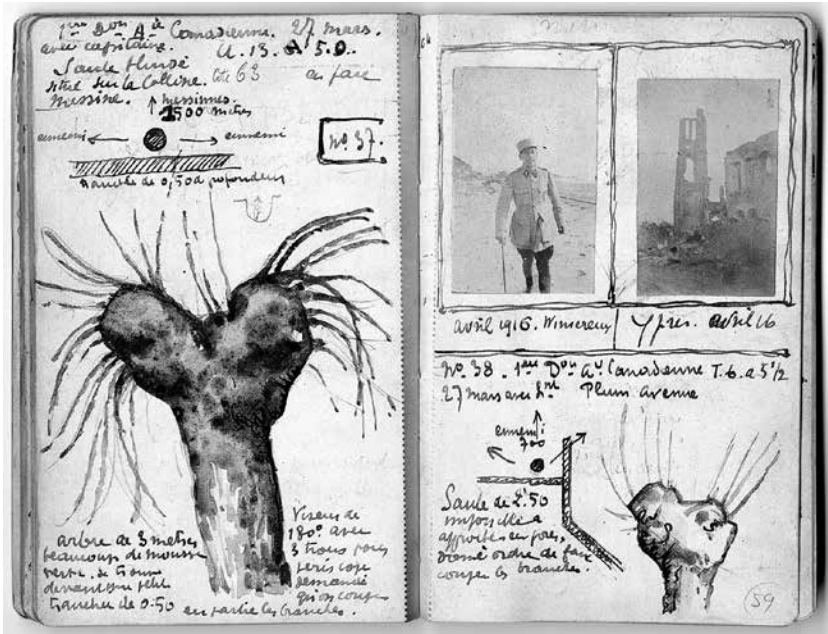 1ère Don Ae Canadienne. 27 mars.
avec capitaine. U. 13. A 5.D.
Saule située sur la Colline. Côte 63 en face
Messine.
Messinnes.
1500 mètres
ennemi
ennemi
No. 37.
tranchée de 0,50 de profondeur
arbre de 3 mètres
beaucoup de mousse
verte. se trouve
devant un petit
tranchée de 0.50
Viseur de
180° avec
3 trous pour
périscope
demandé
qu'on coupe
en partie les branches.
avril 1916. Wimereux
Ypres. avril 16
No. 38. 1ère Don Ae Canadienne T. 6. a 5 1/2
27 mars avec Plum Avenue
ennemi
700
Saule de 2.50
impossible a
donné ordre de faire
couper les branches.
59